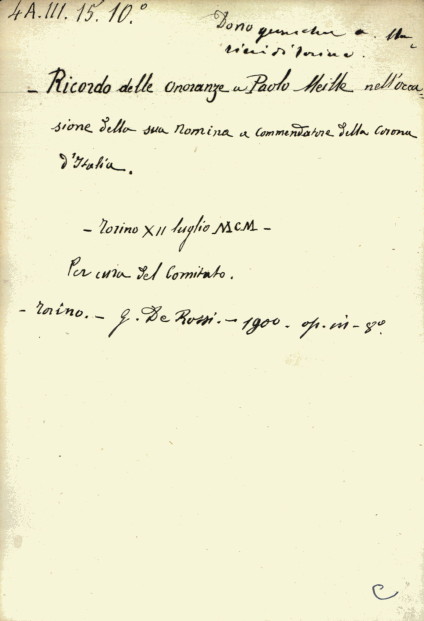 4A.III.15.10.°
Dono
di Torino.
- Ricordo delle Onoranze a Paolo Meille nell'occa-
sione della sua nomina a Commendatore della Corona
d'Italia.
- Torino XII luglio MCM -
Per cura del Comitato.
- Torino. - G. De Rossi. - 1900. op. in - 8°.
C